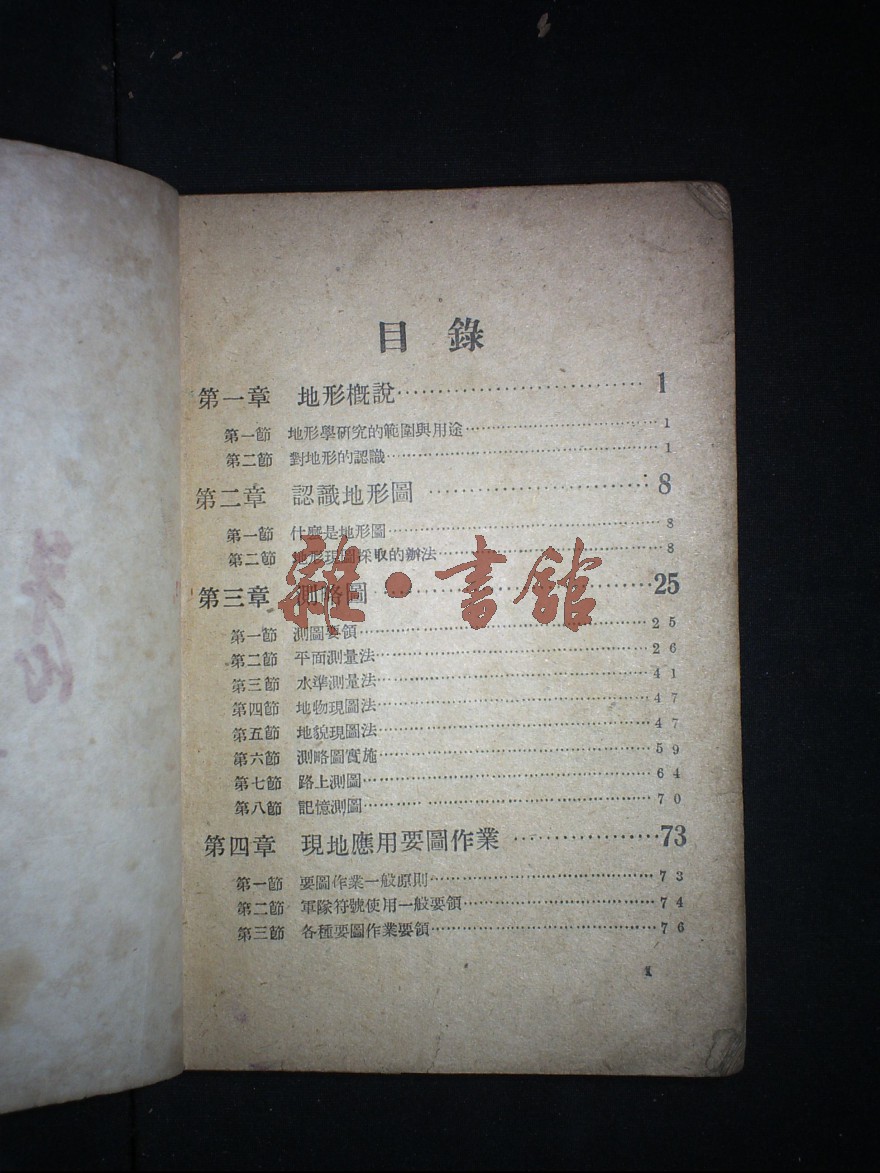 目錄
第一章 地形概說…………………………1
第一節 地形學研究的範圍與用途…………………………1
第二節 對地形的認識…………………………1
第二章 認識地形圖…………………………8
第一節 什麼是地形圖…………………………8
第二節 地形現圖採取的辦法…………………………8
雜•書館
第三章 測略圖…………………………25
第一節 測圖要領…………………………25
第二節 平面測量法…………………………26
第三節 水準測量法…………………………41
第四節 地物現圖法…………………………47
第五節 地貌現圖法…………………………47
第六節 測略圖實施…………………………59
第七節 路上測圖…………………………64
第八節 記憶測圖…………………………70
第四章 現地應用要圖作業…………………………73
第一節 要圖作業一般原則…………………………73
第二節 軍隊符號使用一般要領…………………………74
第三節 各種要圖作業要領…………………………76